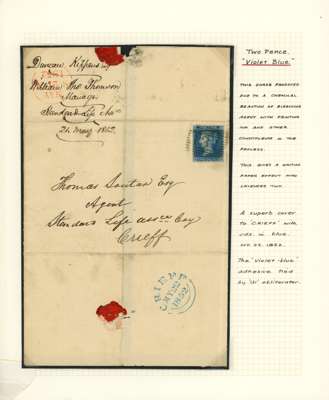 Duncan Kippen Esq
William Tho Thomson
Manager
Standard Life Ass
21 May 1852
Thomas Soutar Esq
Agent
Standard Life assce Coy
Crieff
CRIEFF
MY 22
1852
"Two Pence
"Violet Blue."
THIS SHADE PRODUCED
DUE TO A CHEMICAL
REACTION OF BLEACHING
AGENT WITH PRINTING
INK AND OTHER
CONSTITUENTS IN THE
PROCESS.
THIS GIVES A
PAPER EFFECT AND
LAVENDER TINT.
A superb cover
to 'CRIEFF' with
cds. in blue.
MY. 22. 1852.
The "violet-blue"
adhesive tied
by obliterator.